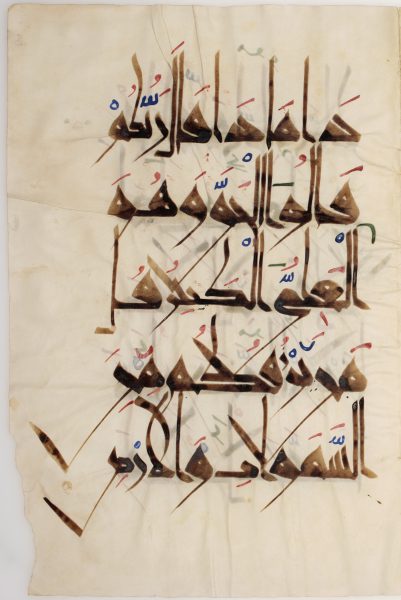 ماذا قال ربكم
قالوا الحق وهو
العلي الكبير قل
من يرزقكم من
السموت والارض